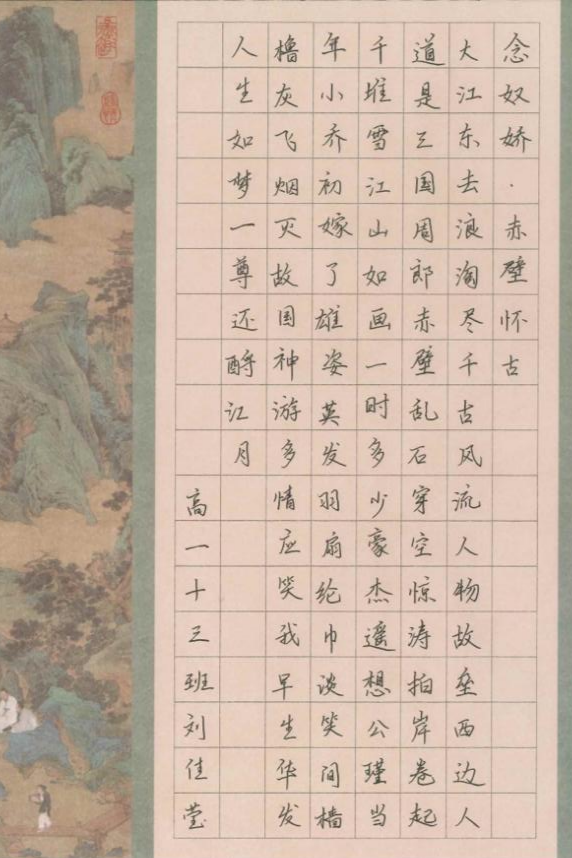 念奴娇·赤壁怀古
大江东去浪淘尽千古风流人物故垒西边人
道是三国周郎赤壁乱石穿空惊涛拍岸卷起
千堆雪江山如画一时多少豪杰遥想公瑾当
年小乔初嫁了雄姿英发羽扇纶巾谈笑间樯
橹灰飞烟灭故国神游多情应笑我早生华发
人生如梦一尊还酹江月
高一十三班刘佳莹